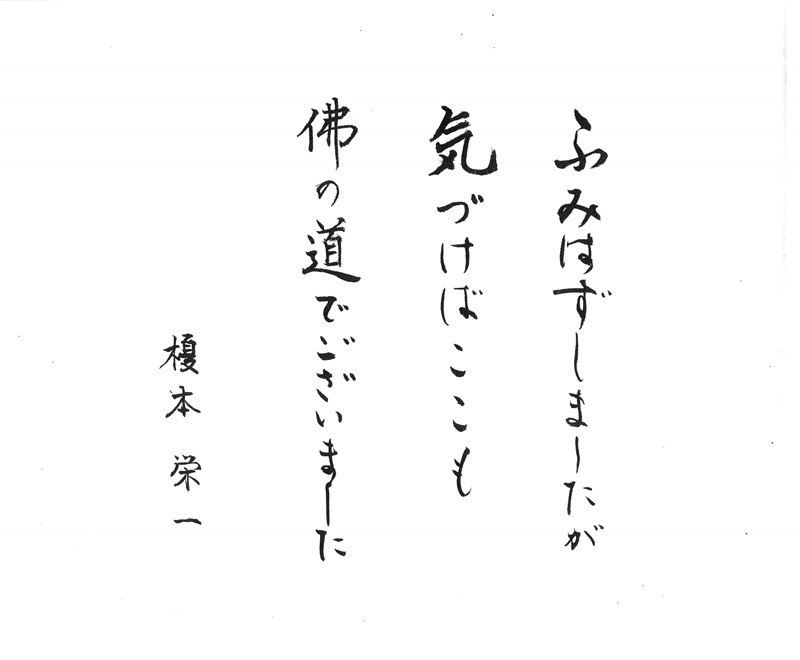 ふみはずしましたが
気づけばここも
佛の道でございました
榎本 栄一